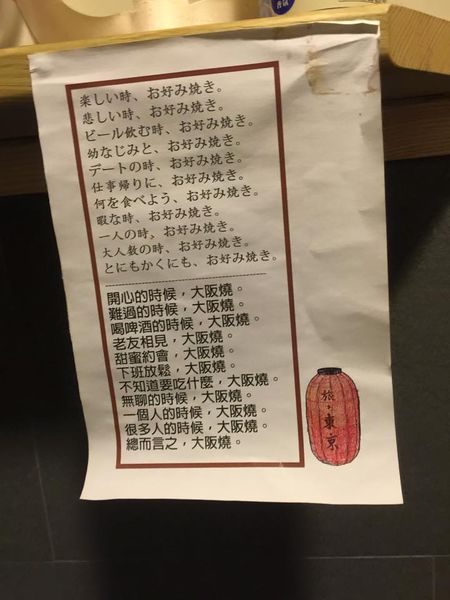 楽しい時、お好み焼き。
悲しい時、お好み焼き。
ビール飲む時、お好み焼き。
幼なじみと、お好み焼き。
デートの時、お好み焼き。
仕事帰りに、お好み焼き。
何を食べよう、お好み焼き。
暇な時、お好み焼き。
一人の時、お好み焼き。
大人数の時、お好み焼き。
とにもかくにも、お好み焼き。
開心的時候，大阪燒。
難過的時候，大阪燒。
喝啤酒的時候，大阪燒。
老友相見，大阪燒。
甜蜜約會，大阪燒。
下班放鬆，大阪燒。
不知道要吃什麼，大阪燒。
無聊的時候，大阪燒。
一個人的時候，大阪燒。
很多人的時候，大阪燒。
總而言之，大阪燒。
旅，東京